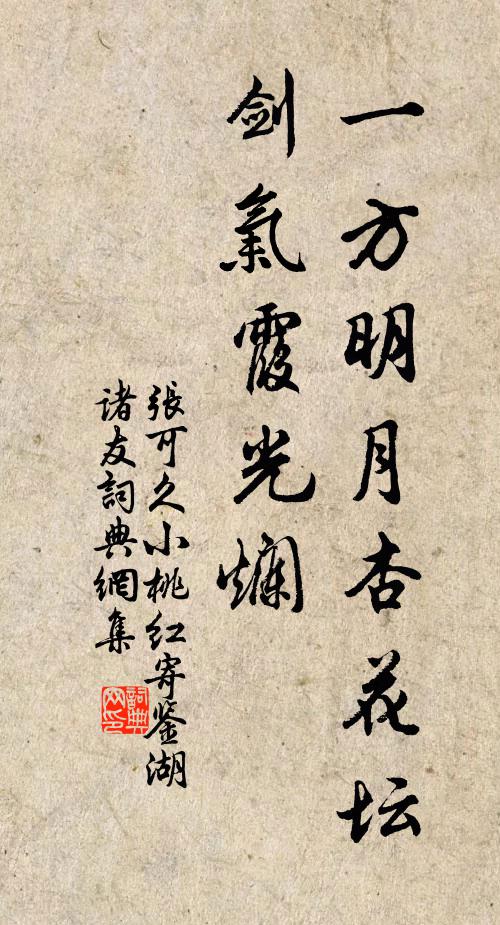 一方明月杏花坛
劍氣霞光爛
張可久小桃红寄鉴湖
诸友詞典網集
詞典网印